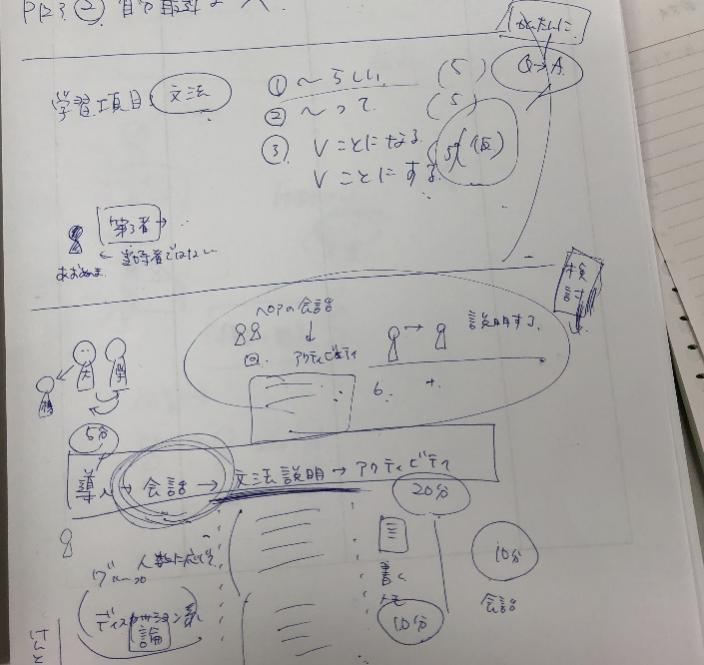 かんたんに
Q→A
学習項目 文法
① ～らしい (5)
② ～って (5)
③ Vことになる (5)(仮)
Vことにする
第3者→
当事者ではない
検討
ペアの会話
↓
回 アクティビティ
→ 説明する
6.
5分
導入→会話→文法説明→アクティビティ
20分
人数に応じ
グループ
書く
メモ
10分
10分
会話
ディスカッション
論
けんと